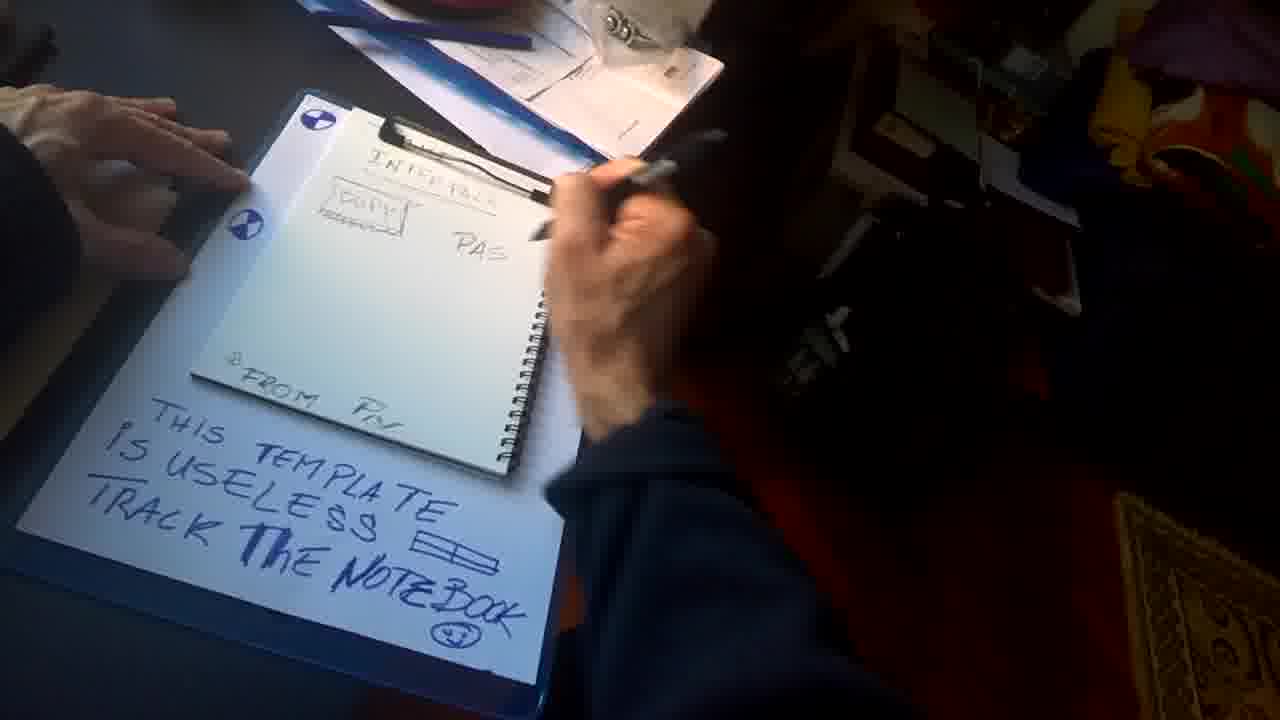 INTERFACE
COPY
PAS
FROM
THIS TEMPLATE
iS USELESS
TRACK THE NOTEBOOK